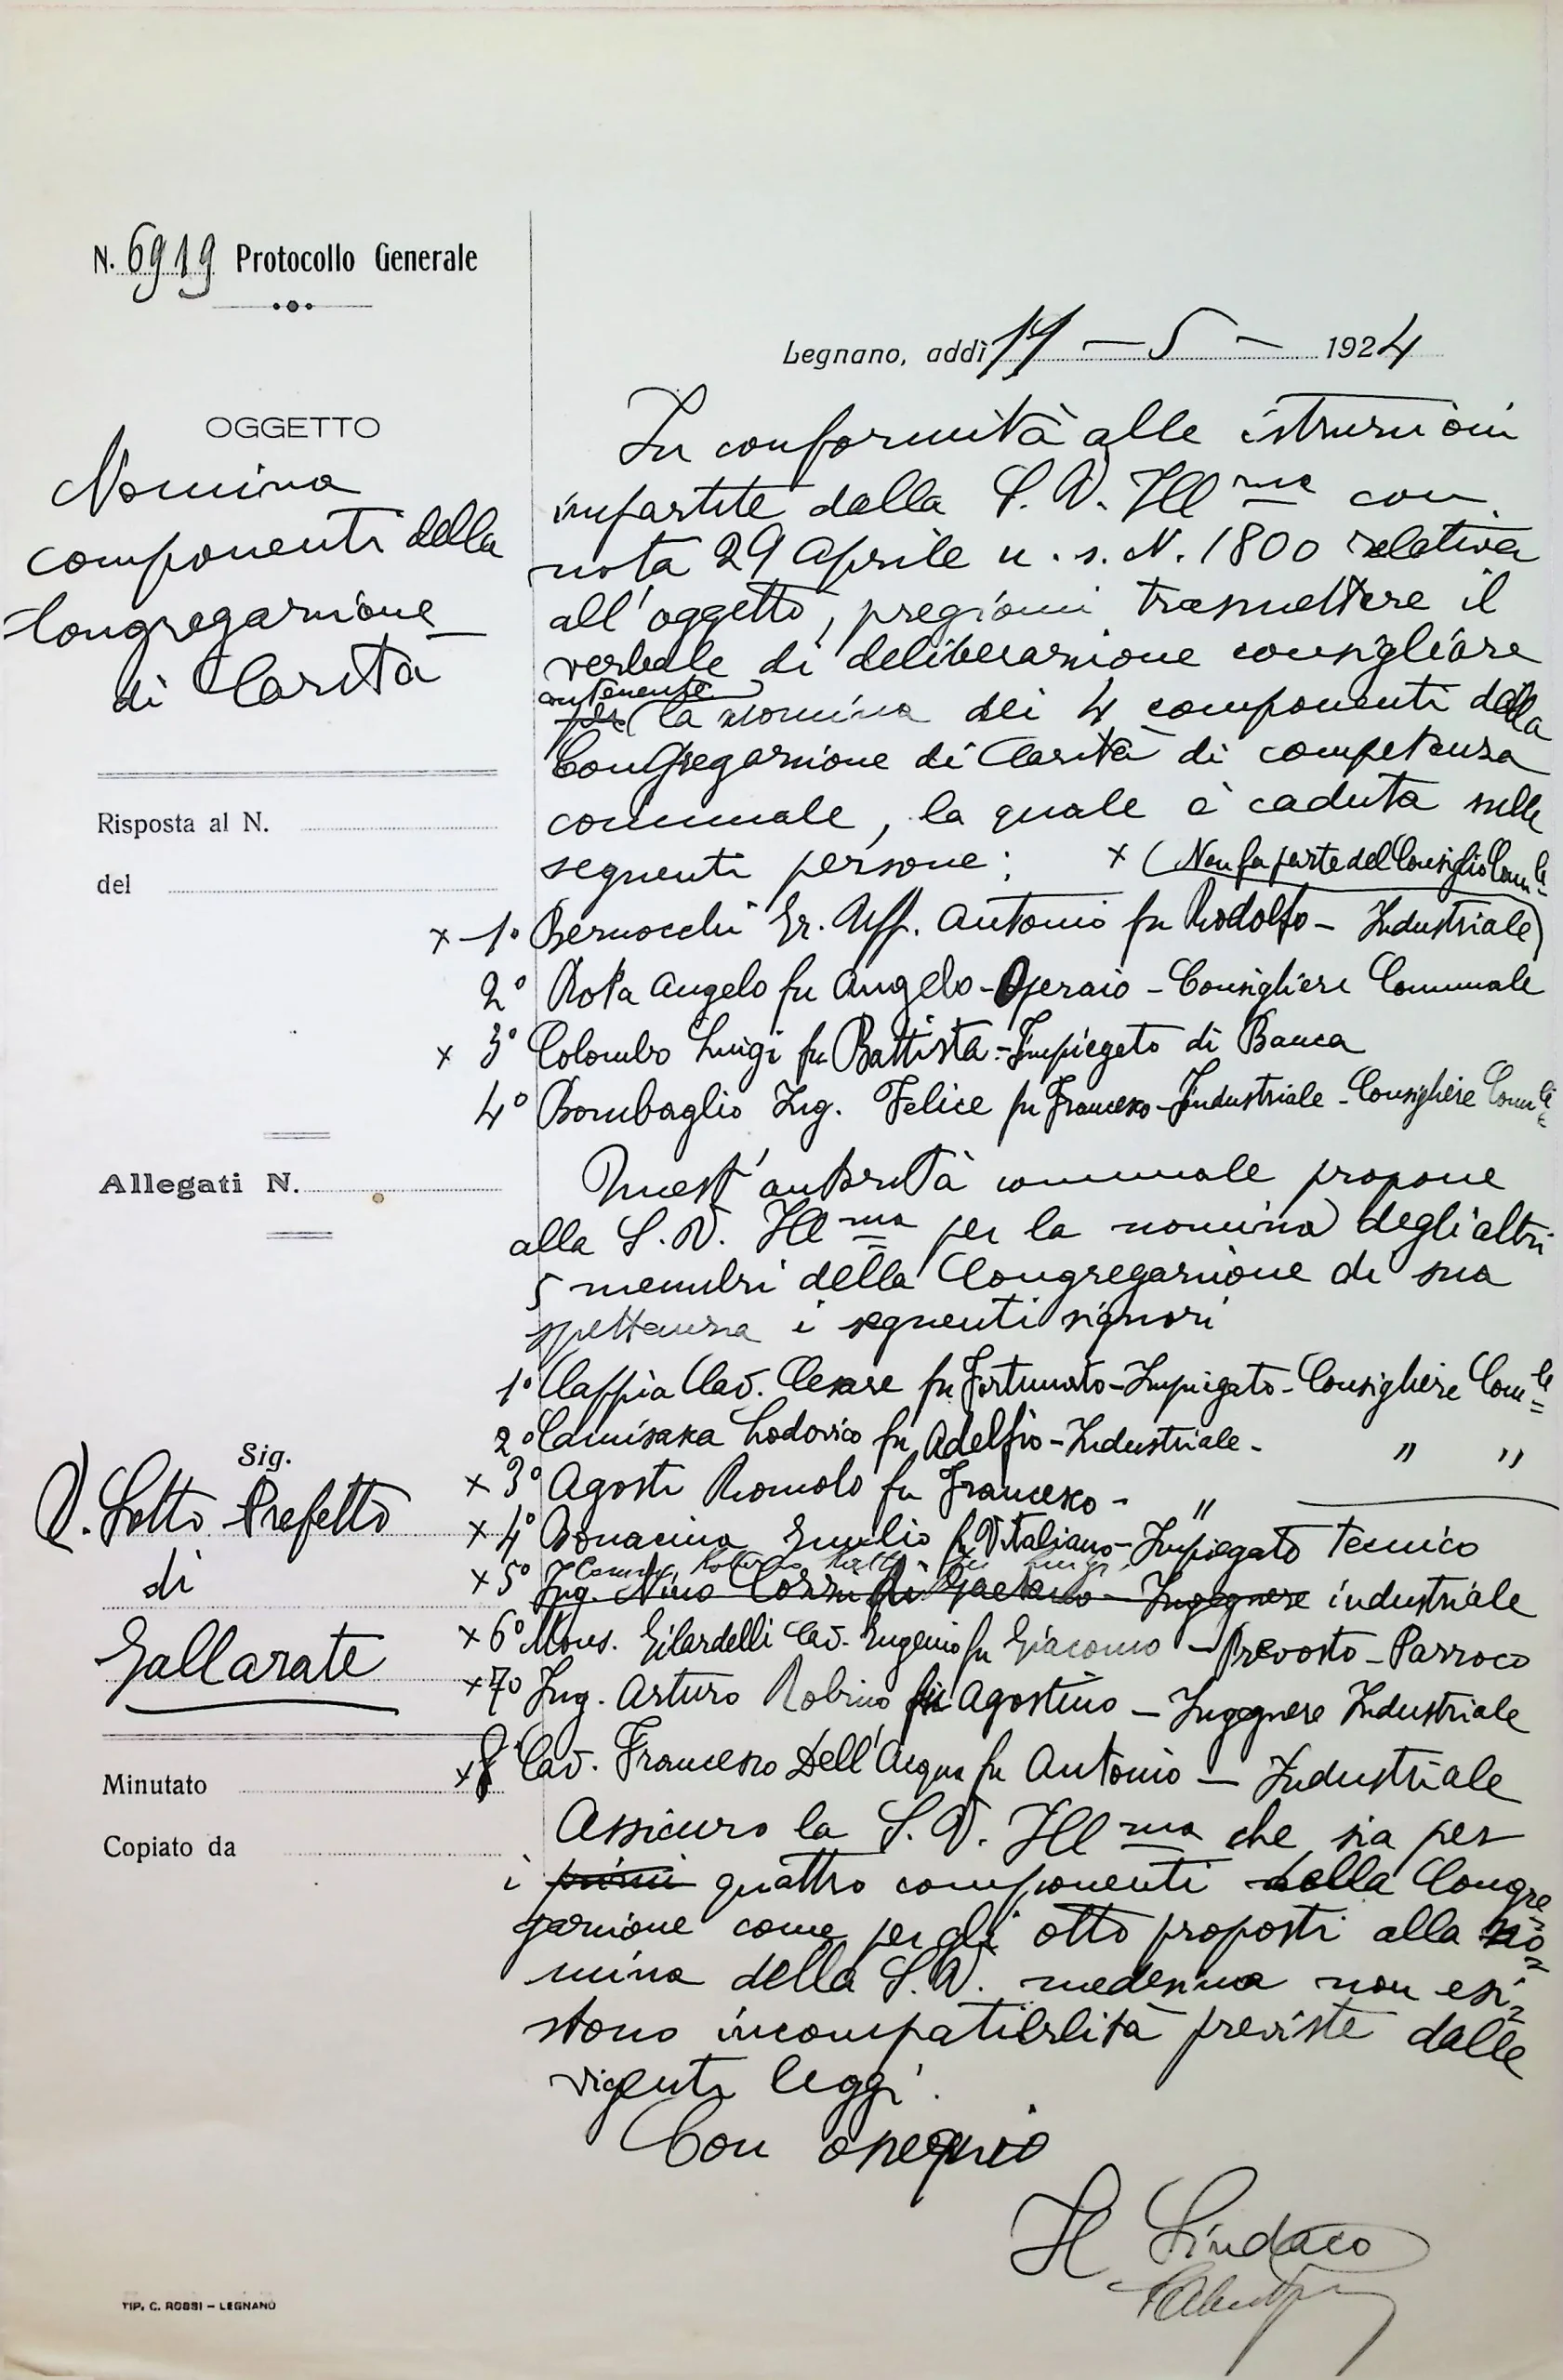 N. 6919 Protocollo Generale
Legnano, addì 17 - 5 - 1924
OGGETTO
Nomina
componenti della
Congregazione
di Carità
Risposta al N.
del
Allegati N.
Sig.
Sotto Prefetto
di
Gallarate
Minutato
Copiato da
In conformità alle istruzioni
impartite dalla S. V. Ill ma con
nota 29 Aprile u. s. N. 1800 relativa
all'oggetto, pregiomi trasmettere il
verbale di deliberazione consigliare
contenente
per la nomina dei 4 componenti della
Congregazione di Carità di competenza
comunale, la quale è caduta sulle
seguenti persone: x (Non fa parte del Consiglio Com le
x 1° Bernocchi Gr. Uff. Antonio fu Rodolfo - Industriale)
2° Rota Angelo fu Angelo - Operaio - Consigliere Comunale
x 3° Colombo Luigi fu Battista - Impiegato di Banca
4° Bombaglio Ing. Felice fu Francesco - Industriale - Consigliere Com le
Quest'autorità comunale propone
alla S. V. Ill ma per la nomina degli altri
5 membri della Congregazione di sua
spettanza i seguenti signori
1° Cav. Cesare fu Fortunato - Impiegato - Consigliere Com le
2° Camisasca Lodovico fu Adelfio - Industriale - " "
x 3° Agosti Romolo fu Francesco - "
x 4° Bonacina Emilio fu Vitaliano - Impiegato Tecnico
fu Luigi
x 5° Ing. Nino Cozzi di Gaetano - Ingegnere industriale
x 6° Mons. Gilardelli Cav. Eugenio fu Giacomo - Prevosto - Parroco
x 7° Ing. Arturo Robino fu Agostino - Ingegnere Industriale
x 8° Cav. Francesco Dell'Acqua fu Antonio - Industriale
Assicuro la S. V. Ill ma che sia per
i primi quattro componenti della Congre
gazione come per gli otto proposti alla no=
mina della S. V. medesima non esi=
stono incompatibilità previste dalle
vigenti leggi.
Con ossequio
Il Sindaco
TIP. C. ROSSI - LEGNANO